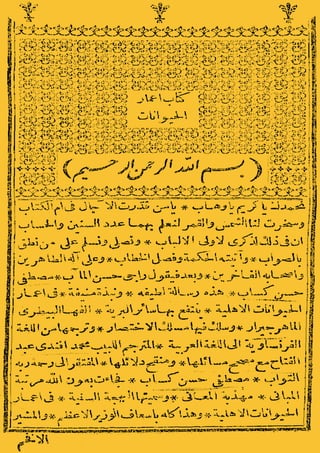 كتاب اعمار
الحيوانات
بسم الله الرحمن الرحيم
الحمد لله يا كريم يا وهاب * يا من قدرت الآجال فى ام الكتاب
وسخرت لنا الشمس والقمر لنعلم بهما عدد السنين والحساب
ان فى ذلك لذكرى لاولى الالباب * ونصلى ونسلم على من نطق
بالصواب * وآتيته الحكمة وفصل الخطاب * وعلى آله الطاهرين
واصحابه الفاخرين * وبعد فيقول راجى حسن المآب * مصطفى
حسن كساب * هذه رسالة لطيفه * ونبذة منيفة * فى اعمار
الحيوانات الاهلية * ينتفع بها سائر البرية * الفها البيطرى
الماهر جيرار * وسلك فيها مسلك الاختصار * وترجمها من اللغة
الفرنساوية الى اللغة العربية * المترجم اللبيب محمد افندى عبد
الفتاح مع مصحح مسائلها * ومنقح دلائلها * المفتقر الى رحمة ربه
التواب * مصطفى حسن كساب * فجاءت بعون الله مرتبة
المبانى * مهذبة المعانى * وسميتها البهجة السنية * فى اعمار
الحيوانات الاهلية * وهذا كله باسعاف الوزير الاعظم * والمشير
الافخم